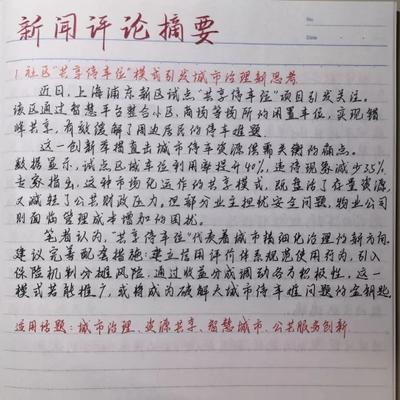 新闻评论摘要
No.
Date
1.社区"共享停车位"模式引发城市治理新思考
近日,上海浦东新区试点"共享停车位"项目引发关注。
该区通过智慧平台整合小区、商场等场所的闲置车位,实现错
峰共享,有效缓解了周边居民的停车难题.
这一创新举措直击城市停车资源供需失衡的痛点。
数据显示,试点区域车位利用率提升40%,违停现象减少35%.
专家指出,这种市场化运作的共享模式,既盘活了存量资源
又减轻了公共财政压力。但部分业主担忧安全问题,物业公司
则面临管理成本增加的困扰。
笔者认为,"共享停车位"代表着城市精细化治理的新方向.
建议完善配套措施:建立信用评价体系规范使用行为,引入
保险机制分摊风险,通过收益分成调动各方积极性。这一
模式若能推广,或将成为破解大城市停车难问题的金钥匙
适用话题:城市治理、资源共享、智慧城市、公共服务创新